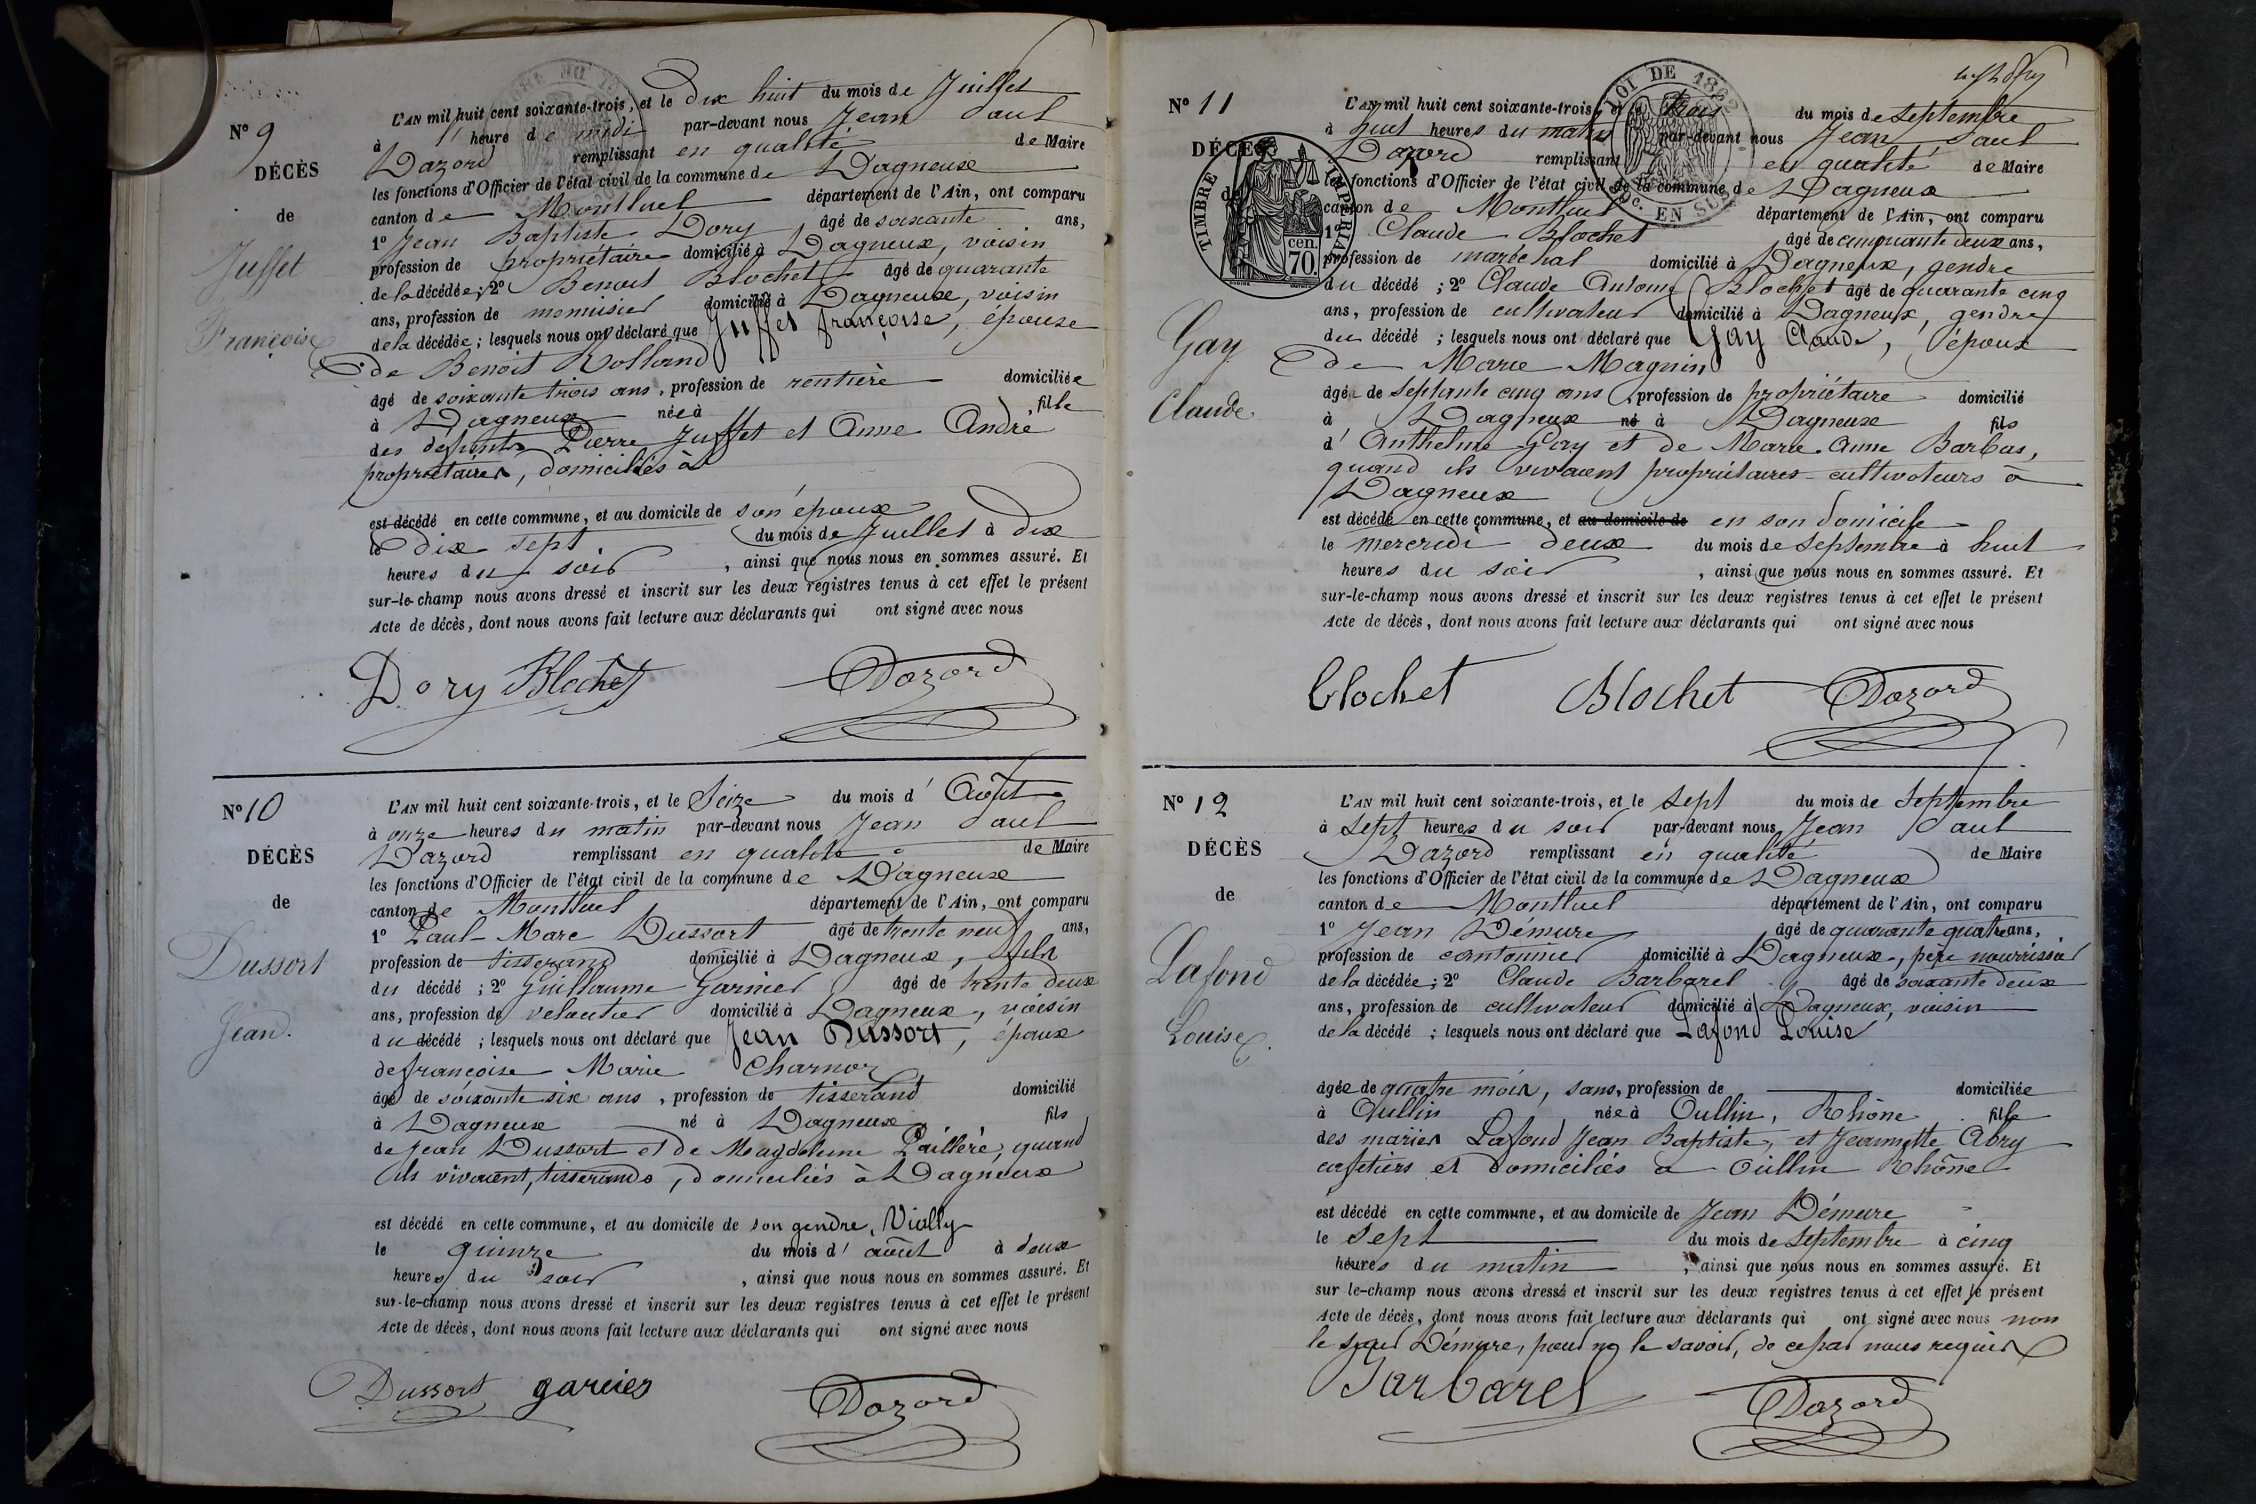 N° 9
DÉCÈS
de
Juffet
Françoise
L'AN mil huit cent soixante-trois, et le dix huit du mois de Juillet
à 1 heure de midi par-devant nous Jean Paul
Dazord remplissant en qualité de Maire
les fonctions d'Officier de l'état civil de la commune de Dagneux
canton de Montluel département de l'Ain, ont comparu
1° Jean Baptiste Dory âgé de soixante ans,
profession de propriétaire domicilié à Dagneux, voisin
de la décédée; 2° Benoit Blochet âgé de quarante
ans, profession de menuisier domicilié à Dagneux, voisin
de la décédée; lesquels nous ont déclaré que Juffet françoise, épouse
de Benoit Rolland
âgé de soixante trois ans, profession de rentière domiciliée
à Dagneux née à , fille
des défunts Pierre Juffet et Anne André
propriétaires, domiciliés à
est décédé en cette commune, et au domicile de son époux
le dix sept du mois de Juillet à dix
heures du soir , ainsi que nous nous en sommes assuré. Et
sur-le-champ nous avons dressé et inscrit sur les deux registres tenus à cet effet le présent
Acte de décès, dont nous avons fait lecture aux déclarants qui ont signé avec nous
Dory Blochet Dazord
N° 10
DÉCÈS
de
Dussort
Jean.
L'AN mil huit cent soixante-trois, et le Seize du mois d' Août
à onze heures du matin par-devant nous Jean Paul
Dazord remplissant en qualité de Maire
les fonctions d'Officier de l'état civil de la commune de Dagneux
canton de Montluel département de l'Ain, ont comparu
1° Paul-Marc Dussort âgé de trente neuf ans,
profession de tisserand domicilié à Dagneux, fils
du décédé ; 2° Guillaume Garnier âgé de trente deux
ans, profession de veloutier domicilié à Dagneux, voisin
du décédé ; lesquels nous ont déclaré que Jean Dussort, époux
de françoise Marie Charnoz
âgé de soixante six ans , profession de tisserand domicilié
à Dagneux né à Dagneux fils
de Jean Dussort et de Magdeleine Paillère, quand
ils vivaient, tisserands, domiciliés à Dagneux
est décédé en cette commune, et au domicile de son gendre, Vially
le quinze du mois d' août à deux
heures du soir , ainsi que nous nous en sommes assuré. Et
sur-le-champ nous avons dressé et inscrit sur les deux registres tenus à cet effet le présent
Acte de décès, dont nous avons fait lecture aux déclarants qui ont signé avec nous
Dussort garnier Dazord
N° 11
DÉCÈS
de
Gay
Claude
LOI DE 1862
TIMBRE IMPÉRIAL
70 cen.
L'AN mil huit cent soixante-trois, et le trois du mois de Septembre
à huit heures du matin par-devant nous Jean Paul
Dazord remplissant en qualité de Maire
les fonctions d'Officier de l'état civil de la commune de Dagneux
canton de Montluel département de l'Ain, ont comparu
1° Claude Blochet âgé de cinquante deux ans,
profession de maréchal domicilié à Dagneux, gendre
du décédé ; 2° Claude Antoine Blochet âgé de quarante cinq
ans, profession de cultivateur domicilié à Dagneux, gendre
du décédé ; lesquels nous ont déclaré que Gay Claude, époux
de Marie Magnin
âgé de septante cinq ans profession de propriétaire domicilié
à Dagneux né à Dagneux fils
d' Anthelme Gay et de Marie-Anne Barbas,
quand ils vivaient propriétaires-cultivateurs à
Dagneux
est décédé en cette commune, et au domicile de en son domicile
le mercredi deux du mois de septembre à huit
heures du soir , ainsi que nous nous en sommes assuré. Et
sur-le-champ nous avons dressé et inscrit sur les deux registres tenus à cet effet le présent
Acte de décès, dont nous avons fait lecture aux déclarants qui ont signé avec nous
blochet Blochet Dazord
N° 12
DÉCÈS
de
Lafond
Louise
L'AN mil huit cent soixante-trois, et le sept du mois de Septembre
à sept heures du soir par-devant nous Jean Paul
Dazord remplissant en qualité de Maire
les fonctions d'Officier de l'état civil de la commune de Dagneux
canton de Montluel département de l'Ain, ont comparu
1° Jean Démure âgé de quarante quatre ans,
profession de cantonnier domicilié à Dagneux, père nourricier
de la décédée ; 2° Claude Barbarel âgé de soixante deux
ans, profession de cultivateur domicilié à Dagneux, voisin
de la décédé ; lesquels nous ont déclaré que Lafond Louise
âgée de quatre mois, sans, profession de domiciliée
à Oullin née à Oullin, Rhône fille
des mariés Lafond Jean Baptiste, et Jeannette Abry
cafetiers et domiciliés à Oullin Rhône
est décédé en cette commune, et au domicile de Jean Démure
le sept du mois de septembre à cinq
heures du matin , ainsi que nous nous en sommes assuré. Et
sur le-champ nous avons dressé et inscrit sur les deux registres tenus à cet effet le présent
Acte de décès, dont nous avons fait lecture aux déclarants qui ont signé avec nous non
le sieur Démure, pour ne le savoir, de ce par nous requis
Barbarel Dazord